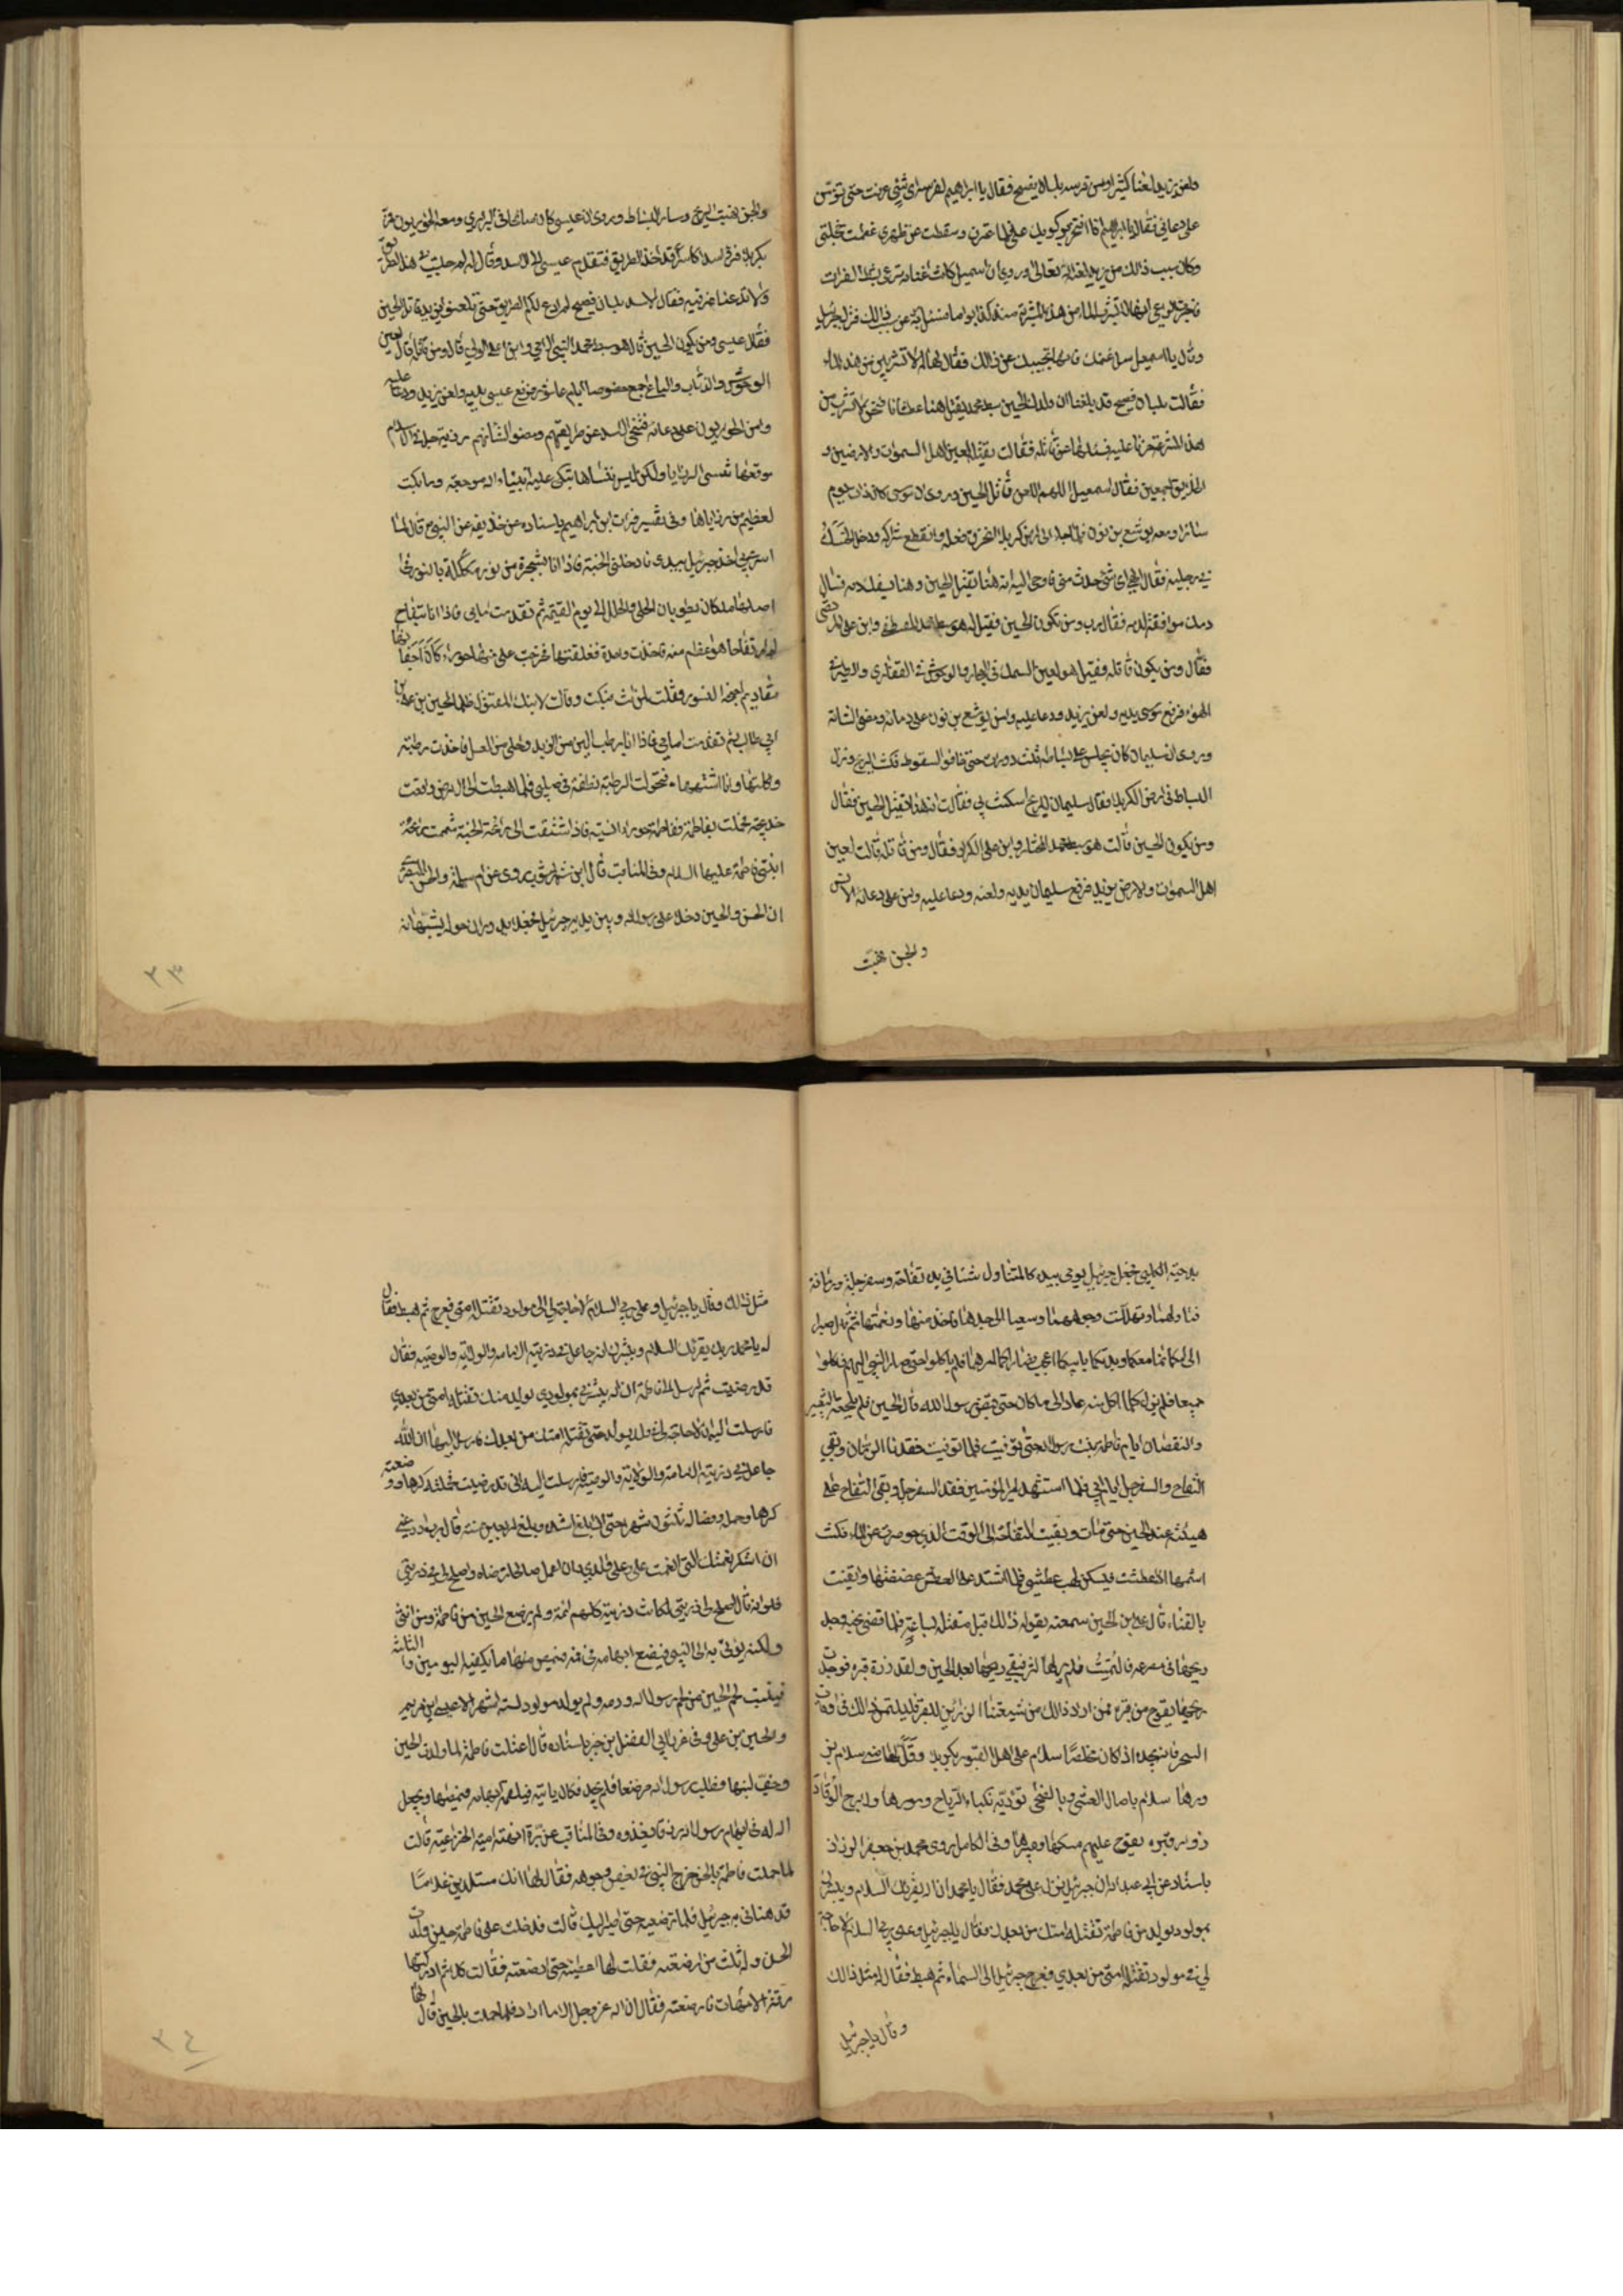 ولعن يزيد لعنا كثيرا ومن فرسه بلسان فصيح فقال يا ابراهيم لفرسه اي شئ عرفت حتى تؤمن
على دعائي فقال يا ابراهيم انا افتخر بركوبك علي فلما عثرت وسقطت عن ظهري عظمت خجلتي
وكان سبب ذلك من يزيد لعنه الله تعالى وروي ان اسمعيل كانت اغنامه ترعى بشط الفرات
فاخبره الراعي انها لا تشرب الماء من هذه المشرعة منذ كذا يوما فسئل ربه عن سبب ذالك فنزل جبرئيل
وقال يا اسمعيل سل غنمك فانها تجيبك عن ذالك فقال لها لم لا تشربين من هذا الماء
فقالت بلسان فصيح قد بلغنا ان ولدك الحسين سبط محمد يقتل هنا عطشانا فنحن لا نشرب من
هذه المشرعة حزنا عليه فسئلها عن قاتله فقالت يقتله لعين اهل السموات والارضين و
الخلائق اجمعين فقال اسمعيل اللهم العن قاتل الحسين وروي ان موسى كان ذات يوم
سائرا ومعه يوشع بن نون فلما جاء الى ارض كربلا انخرق نعله وانقطع شراكه ودخل الحسك
في رجليه فقال الهي اي شئ حدث مني فاوحى اليه ان هنا يقتل الحسين وهنا يسفك دمه فسال
دمك موافقة لدمه فقال رب ومن يكون الحسين فقيل له هو سبط محمد المصطفى وابن علي المرتضى
فقال ومن يكون قاتله فقيل هو لعين السمك في البحار والوحوش في القفار والطير في
الهواء فرفع موسى يديه ولعن يزيد ودعا عليه وامن يوشع بن نون على دعائه ومضى لشانه
وروي ان سليمان كان يجلس على بساطه حتى خافوا السقوط فسكنت الريح ونزل
البساط في ارض الكربلا فقال سليمان للريح لم سكنت فقالت ان هنا يقتل الحسين فقال
ومن يكون الحسين قالت هو سبط محمد المختار وابن علي الكرار فقال ومن قاتله قالت لعين
اهل السموات والارض يزيد فرفع سليمان يديه ولعنه ودعا عليه وامن على دعائه الانس
والجن فهبت
والجن فهبت الريح وسار البساط وروي ان عيسى كان سائحا في البراري ومعه الحواريون فمر
بكربلا فرأى اسدا كاسرا قد اخذ الطريق فتقدم عيسى الى الاسد وقال له لم جلست في هذا الطريق
ولا تدعنا نمر فيه فقال الاسد بلسان فصيح لم ادع لكم الطريق حتى تلعنوا يزيد قاتل الحسين
فقال عيسى ومن يكون الحسين قال هو سبط محمد النبي الامي وابن علي الولي قال ومن قاتله قال لعين
الوحوش والذئاب والسباع اجمع خصوصا ايام عاشورا فرفع عيسى يديه ولعن يزيد ودعا عليه
وامن الحواريون على دعائه فتنحى الاسد عن طريقهم ومضوا لشانهم
لعظيم من رزاياها وفي تفسير فرات ابن ابراهيم باسناده عن حذيفة عن النبي ص قال لما
اسري بي اخذ جبرئيل بيدي فادخلني الجنة فاذا انا بشجرة من نور مكللة بالنور في
اصلها ملكان يطويان الحلي والحلل الى يوم القيمة ثم تقدمت امامي فاذا انا بتفاح
لم ار تفاحا هو اعظم منه فاخذت واحدة ففلقتها فخرجت علي منها حوراء كأن اجفانها
مقاديم اجنحة النسور فقلت لمن انت فبكت وقالت لابنك المقتول ظلما الحسين بن علي بن
ابي طالب ثم تقدمت امامي فاذا انا برطب الين من الزبد واحلى من العسل فاخذت رطبة
واكلتها وانا اشتهيها فتحولت الرطبة نطفة في صلبي فلما هبطت الى الارض واقعت
خديجة فحملت بفاطمة ففاطمة حوراء انسية فاذا اشتقت الى رائحة الجنة شممت رائحة
ابنتي فاطمة عليها السلام وفي المناقب قال ابن شهر اشوب روي عن ام سلمة والحسن البصري
ان الحسن والحسين دخلا على رسول الله وبين يديه جبرئيل فجعلا يدوران حوله يشبهانه
٣٣
بدحية الكلبي فجعل جبرئيل يومي بيده كالمتناول شئا فاذا في يده تفاحة وسفرجلة ورمانة
فناولهما وتهللت وجوههما وسعيا الى جدهما فاخذ منهما وشمها ثم قال صيرا
الى امكما بما معكما وبدئكما بابيكما اعجب فصارا كما امرهما فلم ياكلوا حتى صار النبي اليهم فاكلوا
جميعا فلم يزل كلما اكل منه عاد الى ما كان حتى قبض رسول الله قال الحسين فلم يلحقه التغيير
والنقصان ايام فاطمة بنت رسول الله حتى توفيت فلما توفيت فقدنا الرمان وبقي
التفاح والسفرجل ايام ابي فلما استشهد امير المؤمنين فقد السفرجل وبقي التفاح على
هيئته عند الحسن حتى مات وبقيت التفاحة الى الوقت الذي حوصرت عن الماء فكنت
اشمها اذا عطشت فيسكن لهب عطشي فلما اشتد علي العطش عضضتها وايقنت
بالفناء قال علي بن الحسين سمعته يقول ذالك قبل مقتله بساعة فلما قضى نحبه وجد
ريحها في مصرعه فالتمست فلم ير لها اثر فبقي ريحها بعد الحسين ولقد زرت قبره فوجدت
ريحها يفوح من قبره فمن اراد ذالك من شيعتنا الزائرين للقبر فليلتمس ذالك في اوقات
السحر فانه يجده اذا كان مخلصا سلام على اهل القبور بكربلا وقل لها مني سلام يزورها
سلام باصال العشي وبالضحى تؤديه نكباء الرياح ومورها ولا برح الوفاد
زوار قبره يفوح عليهم مسكها وعبيرها وفي الكامل روى محمد بن جعفر الرزاز
باسناده عن ابي عبد الله ان جبرئيل نزل على محمد فقال يا محمد ان الله يقرئك السلام ويبشرك
بمولود يولد من فاطمة تقتله امتك من بعدك فقال يا جبرئيل وعلى ربي السلام لا حاجة
لي في مولود تقتله امتي من بعدي فعرج جبرئيل الى السماء ثم هبط فقال له مثل ذالك
وقال يا جبرئيل
مثل ذالك وقال يا جبرئيل وعلى ربي السلام لا حاجة لي الى مولود تقتله امتي فعرج ثم هبط فقال
له يا محمد ربك يقرئك السلام ويبشرك انه جاعل في ذريته الامامة والولاية والوصية فقال
قد رضيت ثم ارسل الى فاطمة ان الله يبشرني بمولود يولد منك تقتله امتي من بعدي
فارسلت اليه ان لا حاجة لي في ولد يولد حتى تقتله امتك من بعدك فارسل اليها ان الله
جاعل في ذريته الامامة والولاية والوصية فارسلت اليه اني قد رضيت فحملته كرها ووضعته
كرها وحمله وفصاله ثلثون شهرا حتى اذا بلغ اشده وبلغ اربعين سنة قال رب اوزعني
ان اشكر نعمتك التي انعمت علي وعلى والدي وان اعمل صالحا ترضاه واصلح لي في ذريتي
فلو انه قال اصلح لي ذريتي لكانت ذريته كلهم ائمة ولم يرضع الحسين من فاطمة ومن انثى
ولكنه يؤتى به الى النبي فيضع ابهامه في فيه فيمص منها ما يكفيه اليومين والثلاثة
فينبت لحم الحسين من لحم رسول الله ودمه ولم يولد مولود لستة اشهر الا عيسى ابن مريم
والحسين بن علي وفي باسناده قال اعتلت فاطمة لما ولدت الحسين
وجف لبنها فطلب رسول الله مرضعا فلم يجد فكان ياتيه فيلقمه ابهامه فيمصها ويجعل
الله له في ابهام رسول الله رزقا يغذوه وفي المناقب عن برة ابنة امية الخزاعية قالت
لما حملت فاطمة بالحسن خرج النبي في بعض وجوهه فقال لها انك ستلدين غلاما
قد هناني به جبرئيل فلا ترضعيه حتى اصير اليك قالت فدخلت على فاطمة حين ولدت
الحسن وله ثلث ما ارضعته فقلت لها اعطينيه حتى ارضعه فقالت كلا ثم ادركتها
رقة الامهات فارضعته فقال ان الله عز وجل الا ما اراد فلما حملت بالحسين قال لها
٣٤